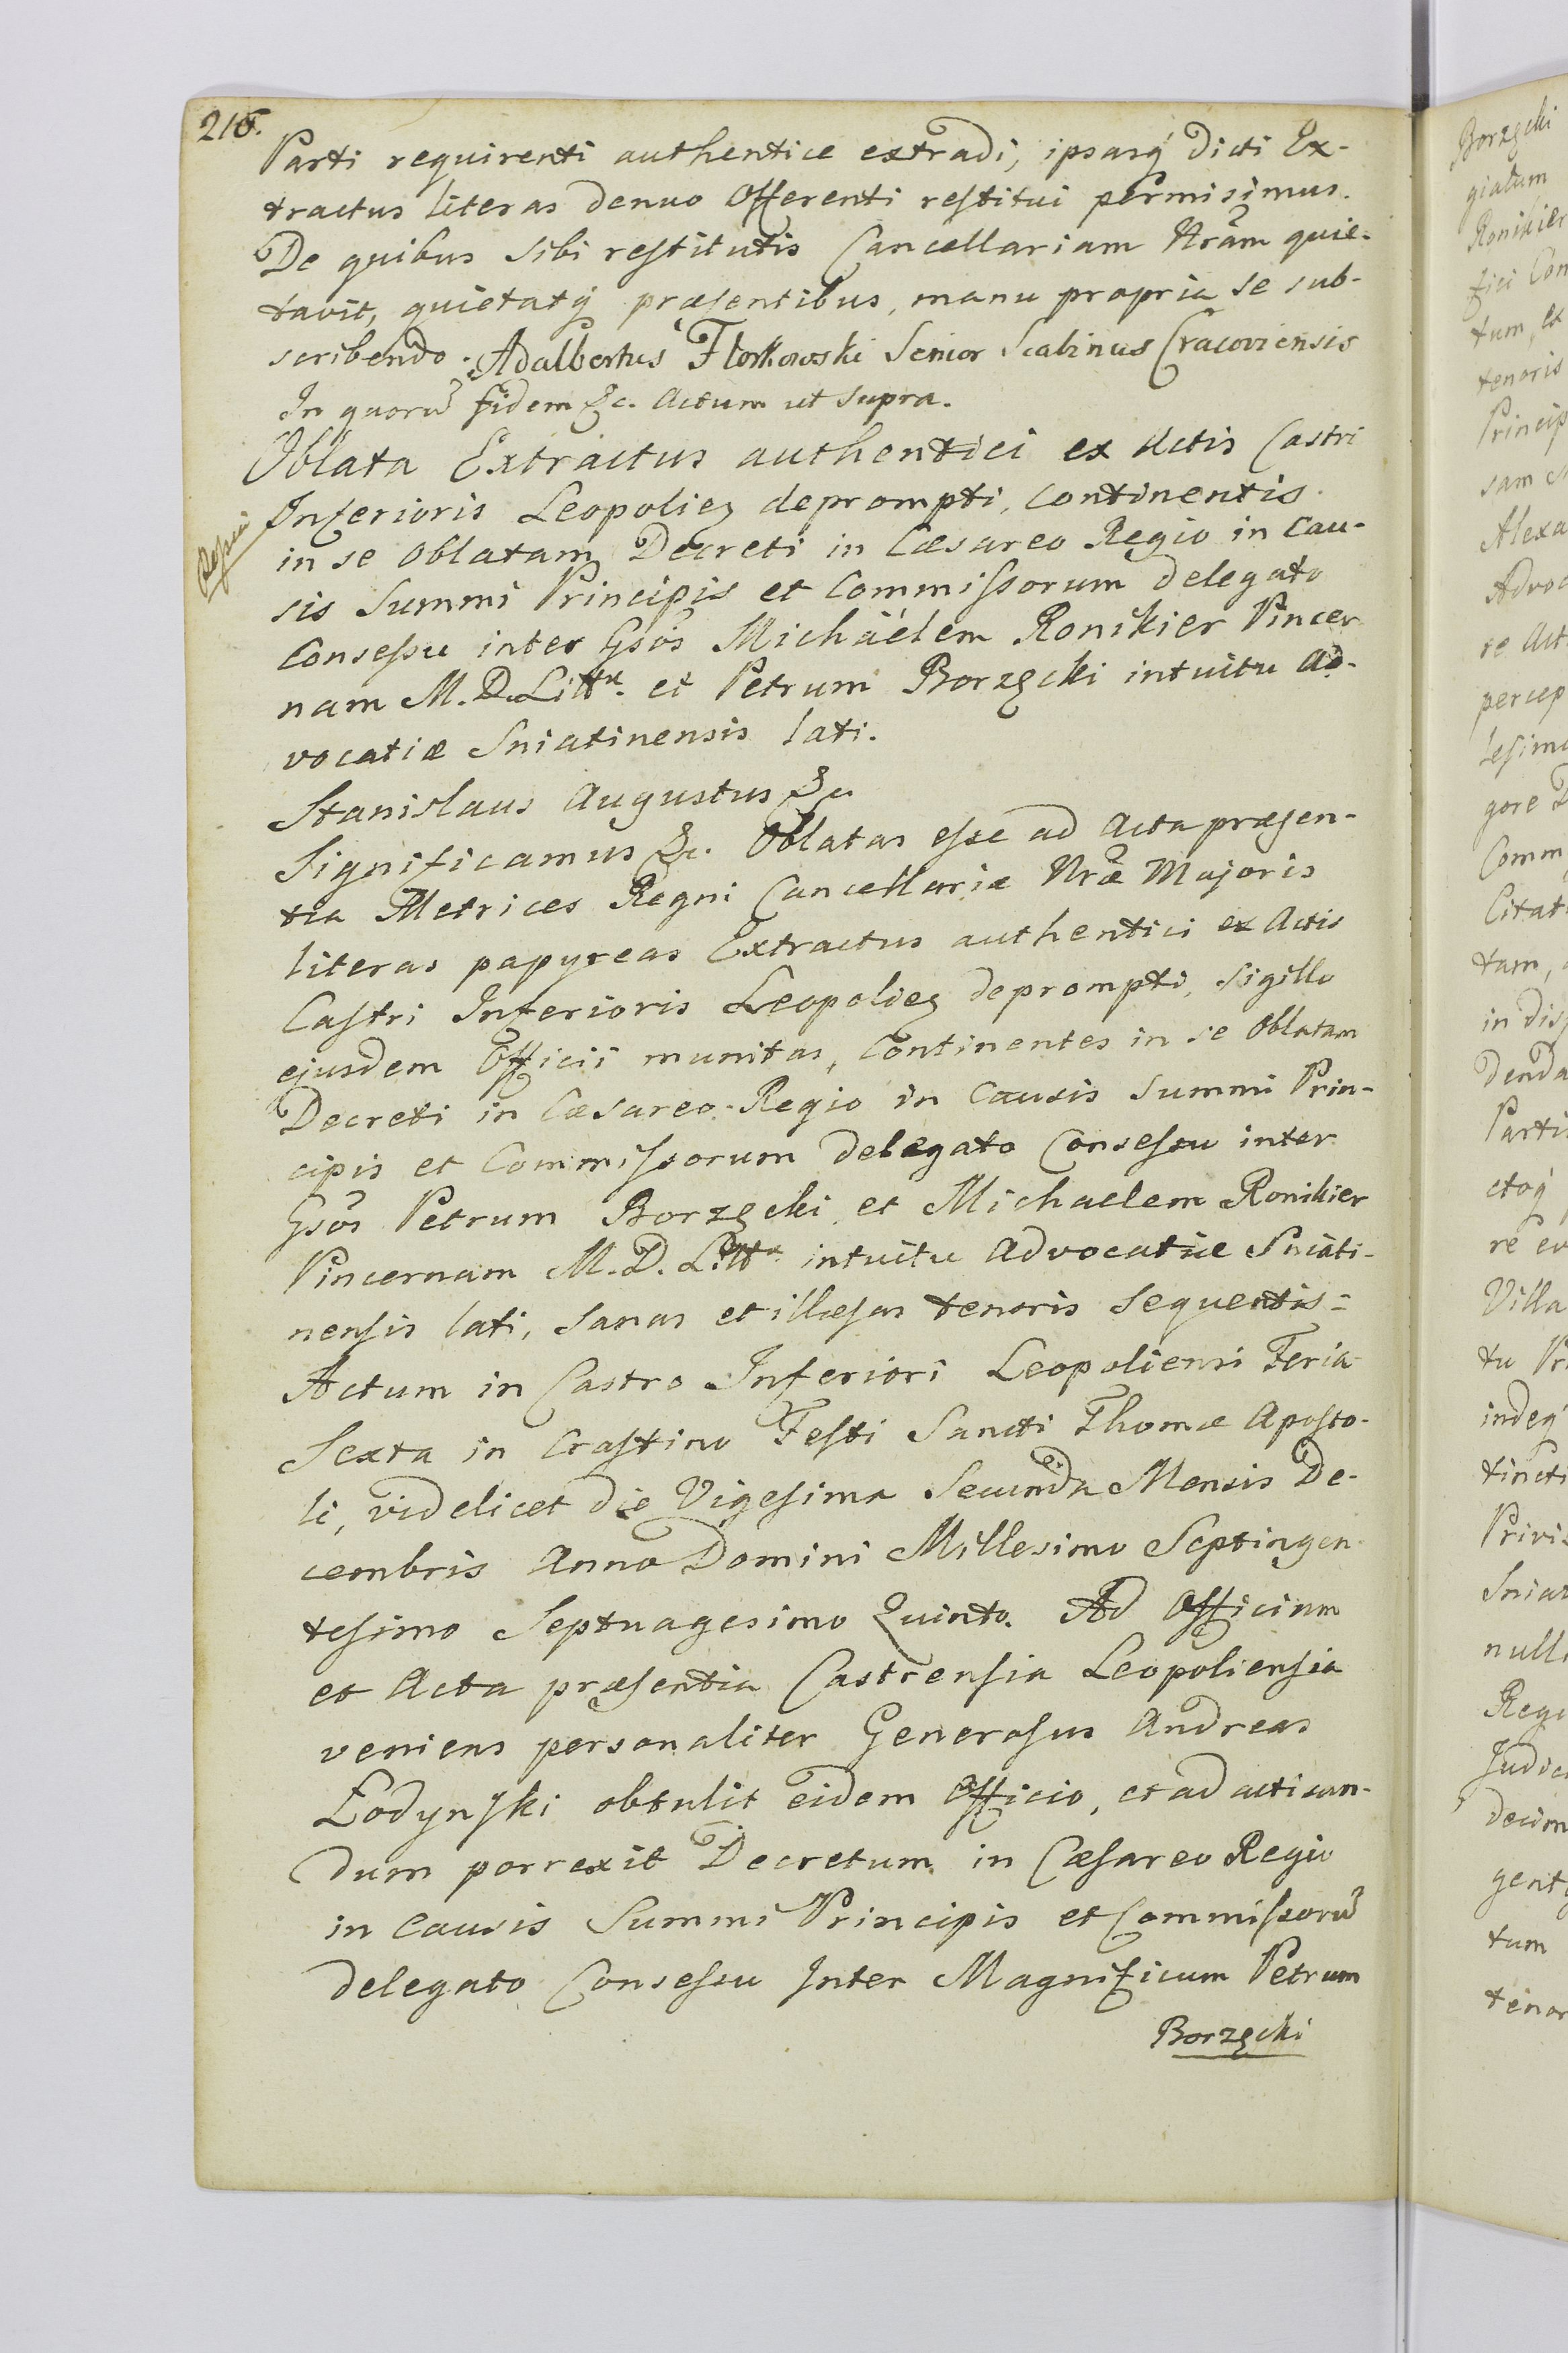 216.
Parti requirenti authentice extradi, ipsasq́ dicti Ex-
tractus literas denuo Offerenti restitui permisimus.
De quibus sibi restitutis Cancellariam Nrãm quie-
tavit, quietatq́ præsentibus, manu propria se sub-
scribendo: Adalbertus Florkowski Senior Scabinus Cracoviensis
In quorũ fidem &c. Actum ut supra.
Oblata Extractus authentici ex Actis Castri
Inferioris Leopolieȝ deprompti, continentis
in se Oblatam Decreti in Cæsareo Regio in Cau-
sis Summi Principis et Commissorum delegato
Consessu inter Gsõs Michaëlem Ronikier Pincer
nam M. D. Littu. et Petrum Borzęcki intuitu Ad-
vocatiæ Sniatinensis lati.
Stanislaus Augustus &c.
Significamus &c. Oblatas esse ad Acta præsen-
tia Metrices Regni Cancellariæ Nræ̃ Majoris
literas papyreas Extractus authentici ex Actis
Castri Inferioris Leopolieȝ deprompti, sigillo
ejusdem Officii munitas, Continentes in se Oblatam
Decreti in Cæsareo-Regio in Causis Summi Prin-
cipis et Commissorum delegato Consessu inter
Gsõs Petrum Borzęcki et Michaelem Ronikier
Pincernam M. D. Litta intuitu Advocatiæ Sniati-
nensis lati, sanas et illæsas tenoris sequentis=
Actum in Castro Inferiori Leopoliensi Feria
Sexta in Crastino Festi Sancti Thomæ Aposto-
li, videlicet die Vigesima Secunda Mensis De-
cembris Anno Domini Millesimo Septingen
tesimo Septuagesimo Quinto. Ad Officium
et Acta præsentia Castrensia Leopoliensia
veniens personaliter Generosus Andreas
Łodynski obtulit eidem Officio, et ad actican-
dum porrexit Decretum in Cæsareo Regio
in Causis Summi Principis et Commissorũ
delegato Consessu Inter Magnificum Petrum
Borzęcki
Borzęcki
giatum
Ronikier
fici Con
tum, ex
tenoris
Princip
sam
Alexa
Advoc
re Act
percep
lesimo
gore D
Comm
Citat
tam,
in dis
denda
Parti
ctoq́
re ev
Villa
tu Pr
indeq́
tincti
Privi
Sniat
null
Reg
Judic
decim
gent
tum
tenor